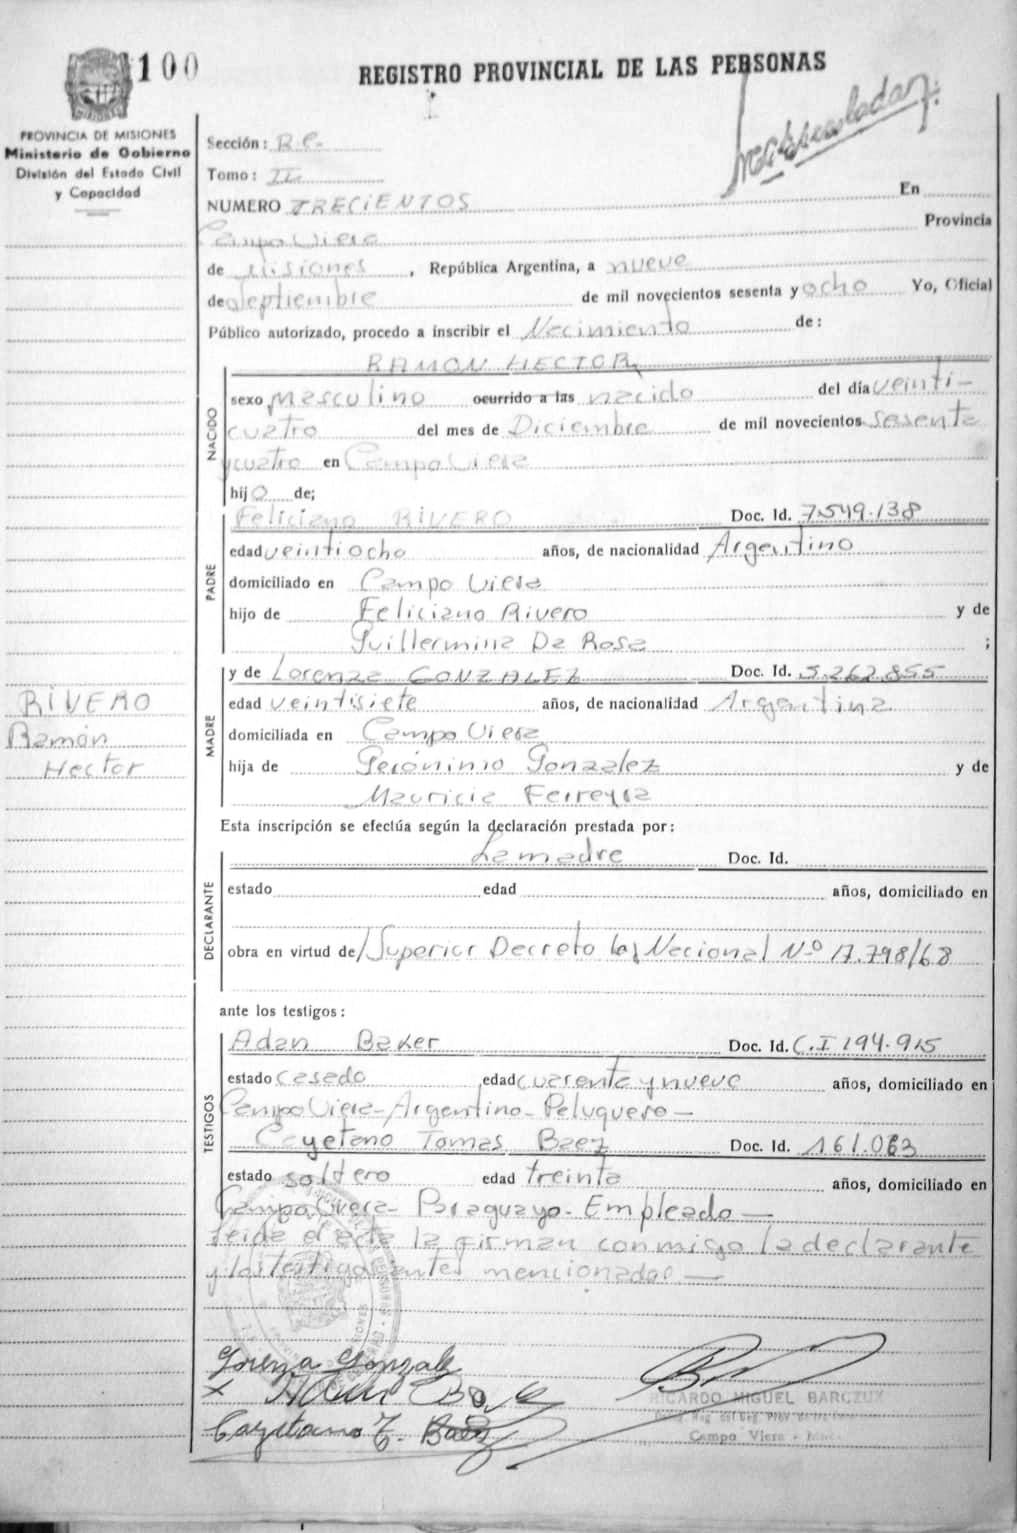 100
REGISTRO PROVINCIAL DE LAS PERSONAS
PROVINCIA DE MISIONES
Ministerio de Gobierno
División del Estado Civil
y Capacidad
Sección: R.C.
Tomo: II
En
NUMERO TRECIENTOS
Campo Viera Provincia
de Misiones, República Argentina, a nueve
de Septiembre de mil novecientos sesenta y ocho Yo, Oficial
Público autorizado, procedo a inscribir el Nacimiento de:
NACIDO
RAMON HECTOR
sexo Masculino ocurrido a las nacido del día veinti-
cuatro del mes de Diciembre de mil novecientos sesenta
y cuatro en Campo Viera
hijo de;
PADRE
Feliciano RIVERO Doc. Id. 7.549.138
edad veintiocho años, de nacionalidad Argentino
domiciliado en Campo Viera
hijo de Feliciano Rivero y de
Guillermina Da Rosa ;
MADRE
y de Lorenza GONZALEZ Doc. Id. 5.262.855
edad veintisiete años, de nacionalidad Argentina
domiciliada en Campo Viera
hija de Gerónimo Gonzalez y de
Mauricia Ferreyra
RIVERO
Ramón
Hector
Esta inscripción se efectúa según la declaración prestada por:
DECLARANTE
La madre Doc. Id.
estado edad años, domiciliado en
obra en virtud de/Superior Decreto Ley Nacional Nº 17.798/68
ante los testigos:
TESTIGOS
Adan Baker Doc. Id. C.I 194.915
estado casado edad cuarenta y nueve años, domiciliado en
Campo Viera-Argentino-Peluquero-
Cayetano Tomas Baez Doc. Id. 161.063
estado soltero edad treinta años, domiciliado en
Campo Viera- Paraguayo- Empleado-
leida el acta la firman conmigo la declarante
y los testigos antes mencionados-
Lorenza Gonzale
Cayetano T. Baez
RICARDO MIGUEL BARCZUK
Campo Viera - Mnes.